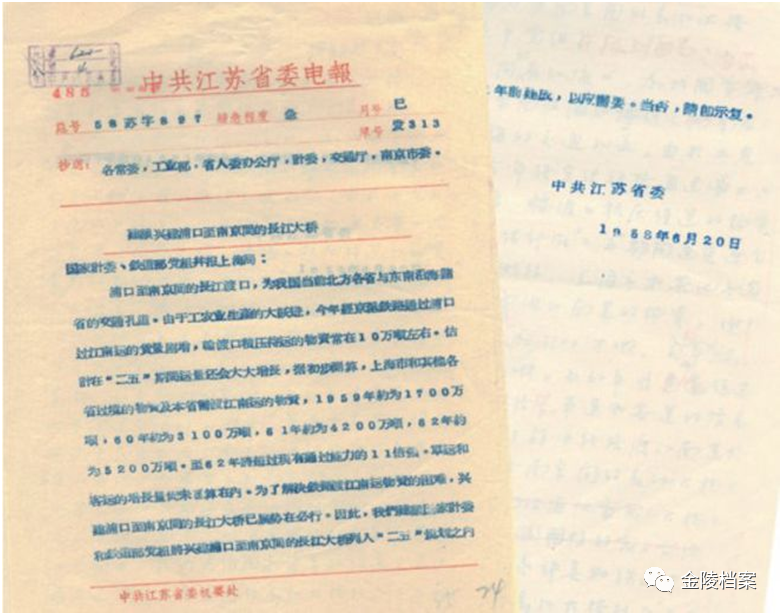 488
中共江苏省委电報
58苏字897 緩急程度 急 月号 巳
号 发313
抄送: 各常委,工业部,省人委办公厅,計委,交通厅,南京市委。
兴建浦口至南京間的長江大桥
国家計委、鉄道部党組并报上海局:
浦口至南京間的长江渡口,为我国当前北方各省与东南沿海諸
省的交通孔道。由于工农业生产的大跃进,今年經京滬鉄路通过浦口
过江南运的貨量剧增,輪渡口积压待运的物資常在10万吨左右。估
計在“二五”期間运量还会大大增长,据初步測算,上海市和其他各
省过境的物資及本省需渡江南运的物資,1959年約为1700万
吨,60年約为3100万吨,61年約为4200万吨,62年約
为5200万吨。至62年将超过現有通过能力的11倍强。軍运和
客运的增长量尚未計算在内。为了解决鉄路渡江南运物資的困难,兴
建浦口至南京間的长江大桥已属势在必行。因此,我們建議国家計委
和鉄道部党組将兴建浦口至南京間的长江大桥列入“二五”規划之内
中共江苏省委机要处
24
,以应需要。当否,請即示复。
中共江苏省委
1958年6月20日
金陵档案